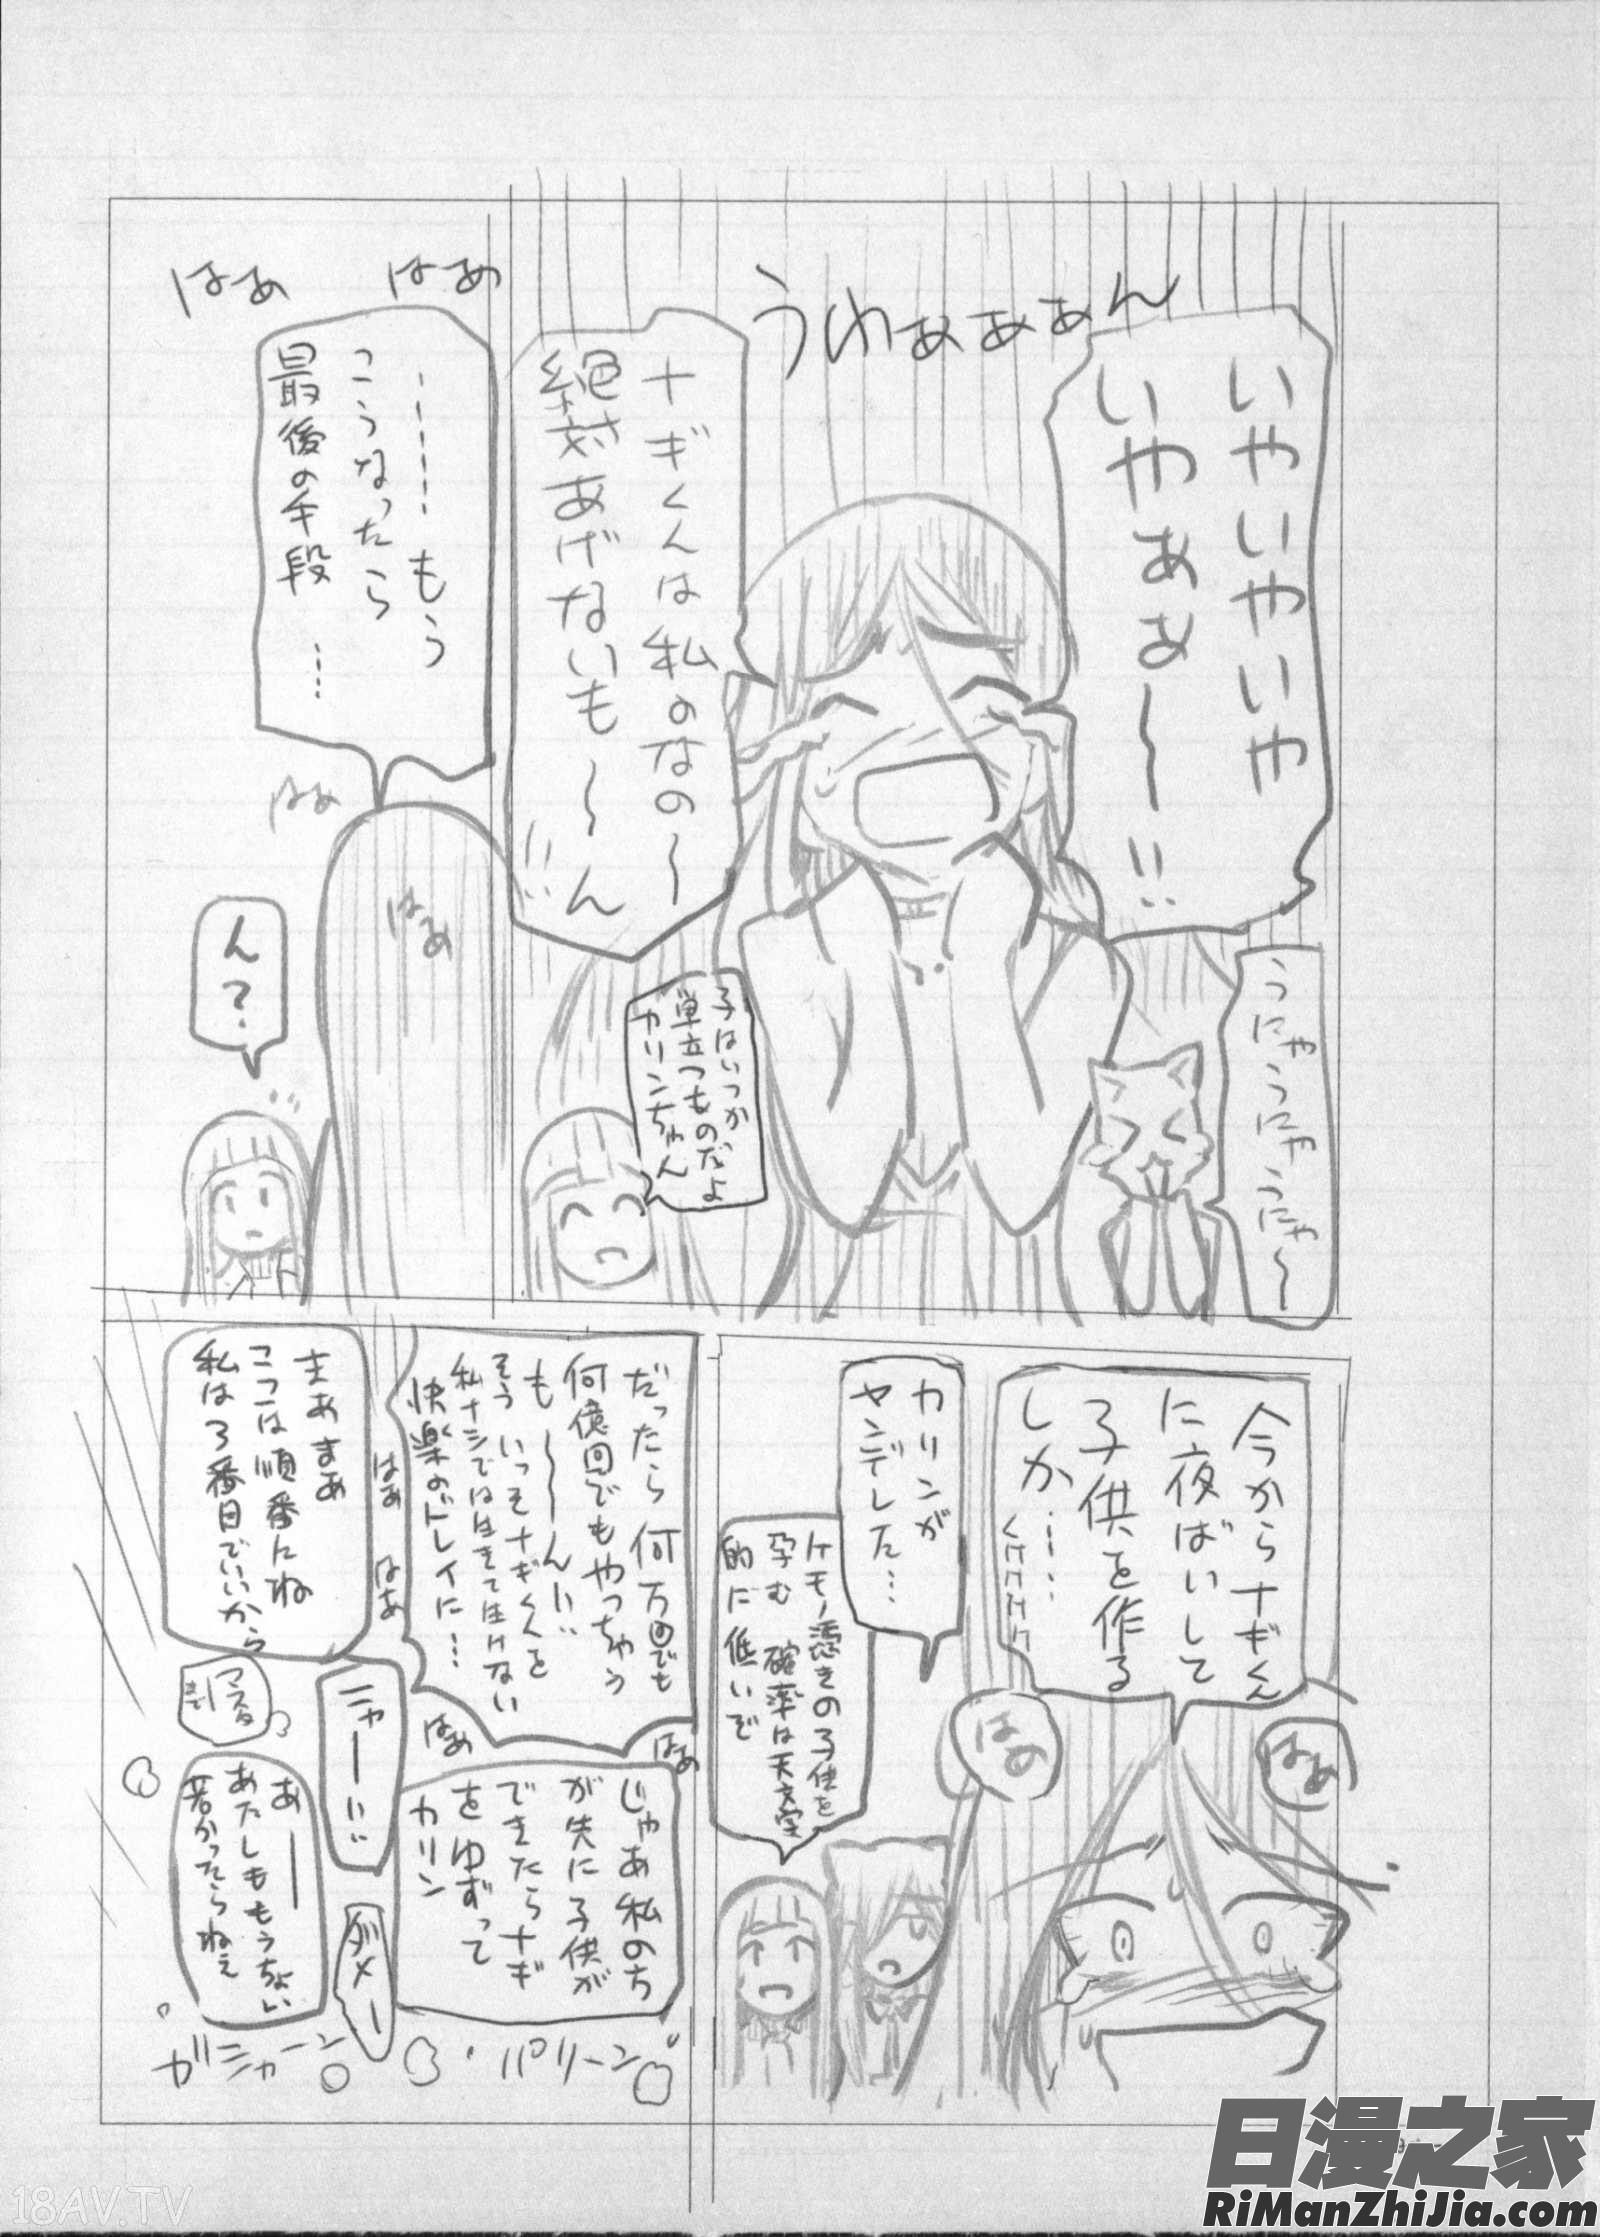 いやいやいや
いやぁぁ〜!!
うわぁぁぁん
うにゃうにゃうにゃ〜
ナギくんは私のなの〜
絶対あげないも〜ん
!!
子はいつか
巣立つものだよ
カリンちゃん
はぁ
はぁ
…………もう
こうなったら
最後の手段
……
はぁ
はぁ
ん?
今からナギくん
に夜ばいして
子供を作る
しか……
くけけけけ
はぁ
はぁ
カリンが
ヤンデレした…
ケモノ憑きの子供を
孕む確率は天文学
的に低いぞ
だったら何万回でも
何億回でもやっちゃう
も〜〜ん!!
そういっそナギくんを
私ナシでは生きて生けない
快楽のドレイに…
はぁ
はぁ
はぁ
はぁ
まあまあ
ここは順番にね
私は3番目でいいから
じゃあ私の方
が先に子供が
できたらナギ
をゆずって
カリン
ニャーー!!
ダメー
マスター
あーー
あたしももうちょい
若かったらねぇ
パリーン
ガシャーン
日漫之家
RiManZhiJia.com
18AV.TV